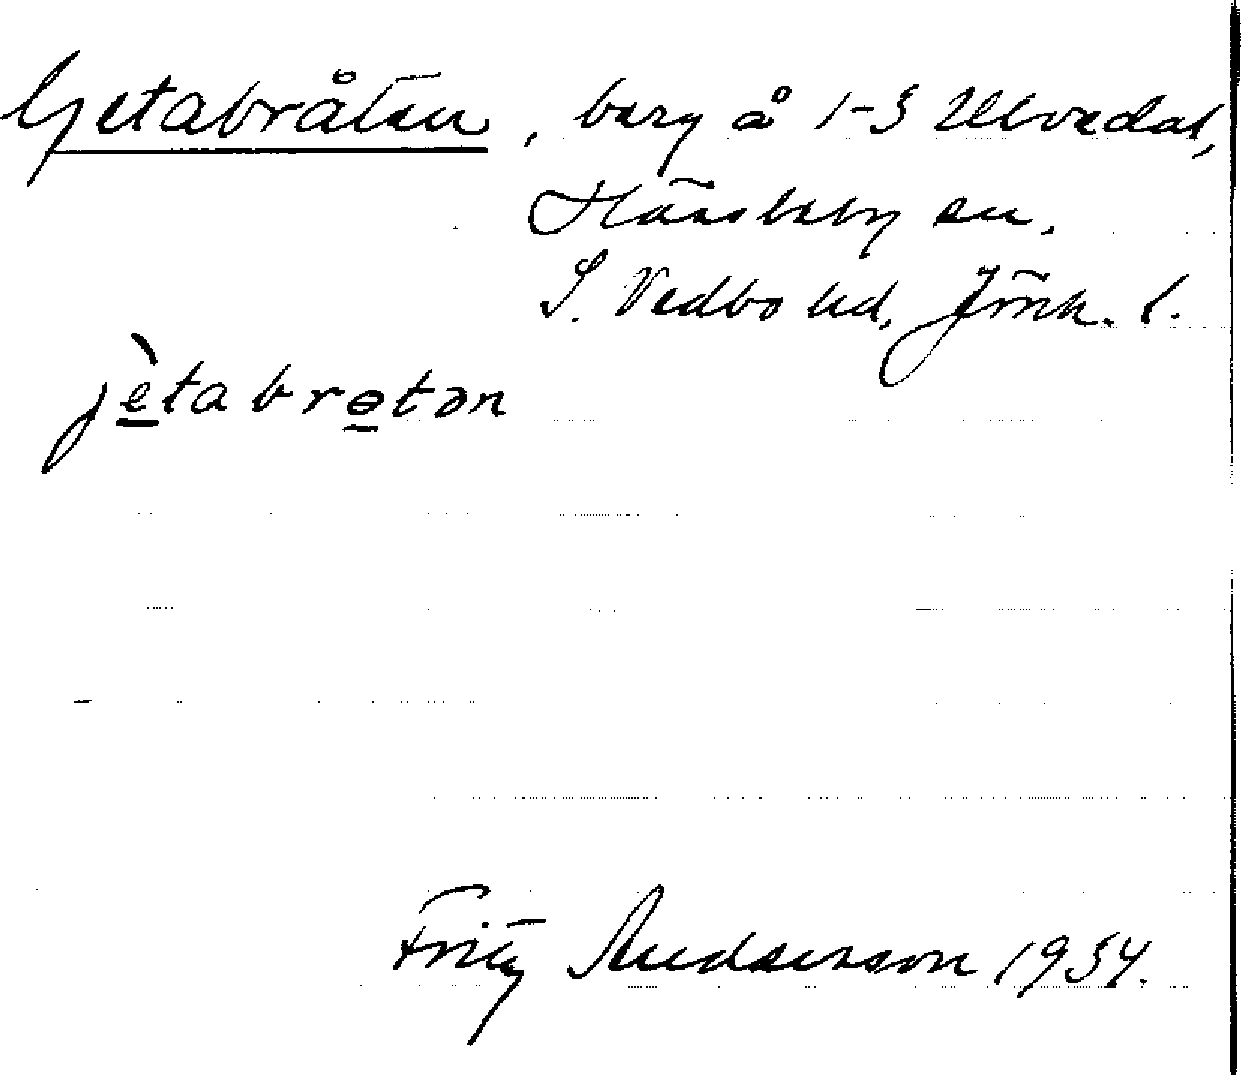 Getabråten, berg å 1-3 Ulvedal,
Hässleby sn.
S. Vedbo hd, Jönk. l.
jètabrɵtən
Fritz Andersson 1934.